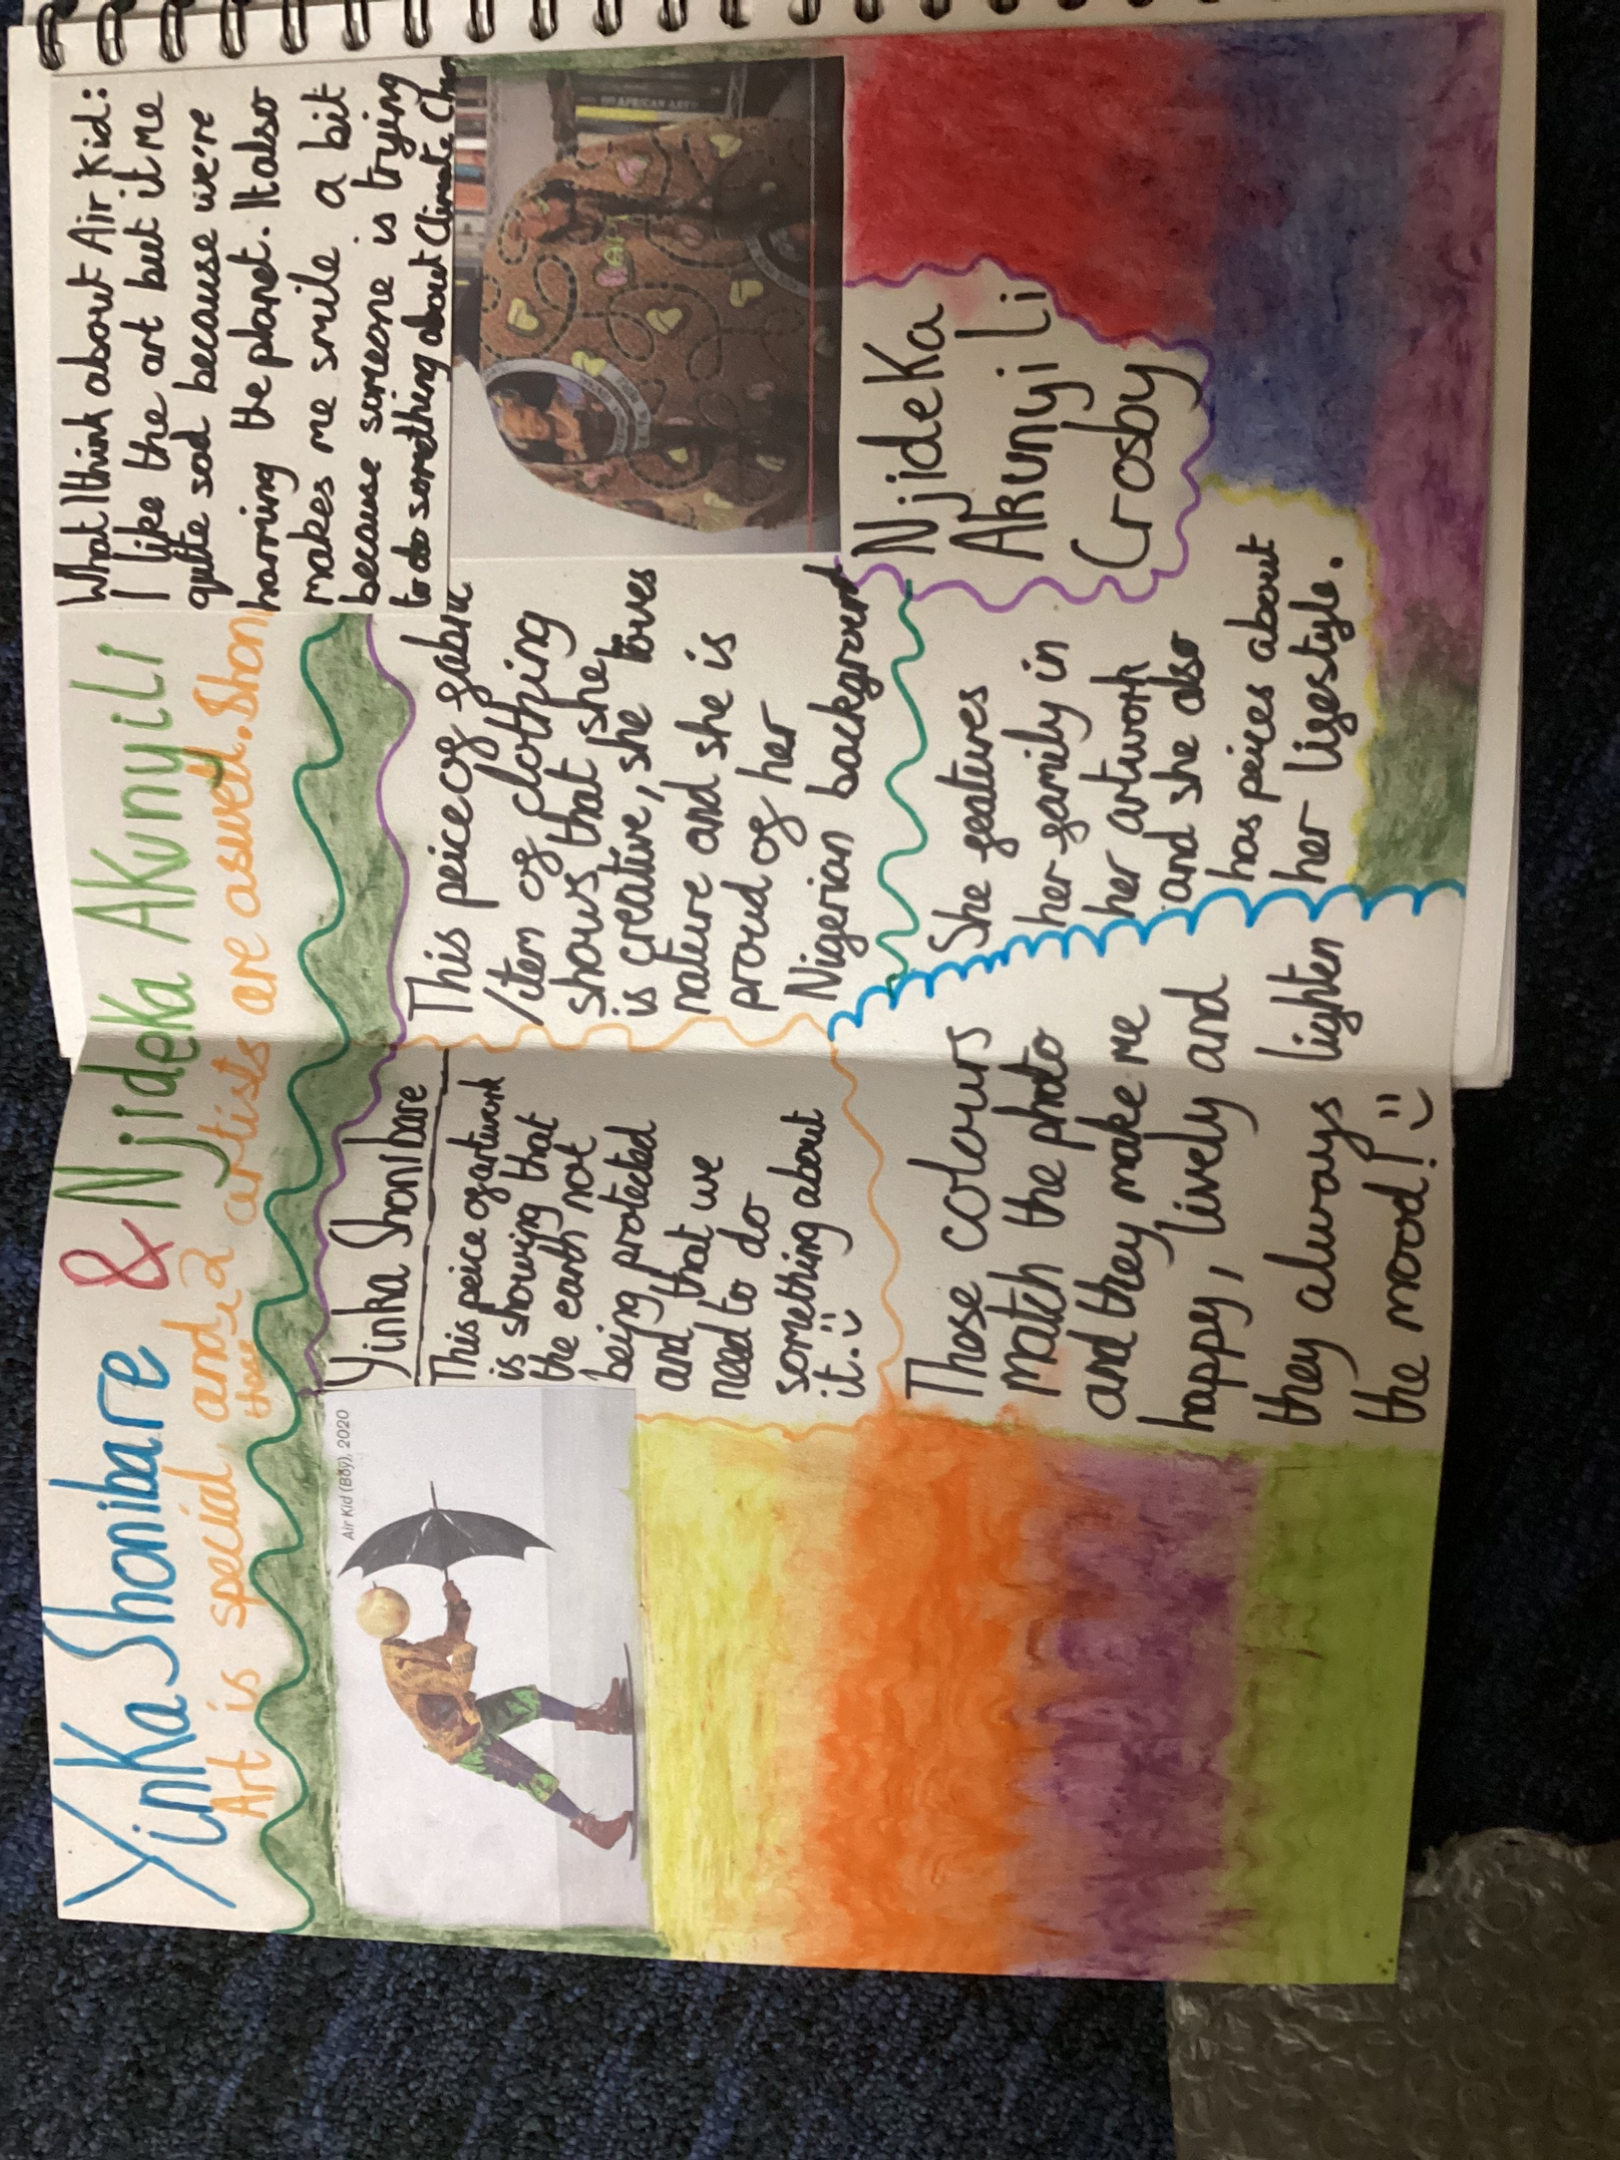 Yinka Shonibare & Njideka Akunyili
Art is special and these 2 artists are aswell. Shon
Air Kid (Boy), 2020
Yinka Shonibare
This peice of artwork
is showing that
the earth not
being protected
and that we
need to do
something about
it. :)
These colours
match the photo
and they make me
happy, lively and
they always lighten
the mood! :)
What I think about Air Kid:
I like the art but it me
quite sad because we're
harming the planet. It also
makes me smile a bit
because someone is trying
to do something about Climate
This peice of fabric
/item of clothing
shows that she
is creative, she loves
nature and she is
proud of her
Nigerian background
AFRICAN ART
Njideka
Akunyi Li
Crosby
She features
her family in
her artwork
and she also
has peices about
her lifestyle.